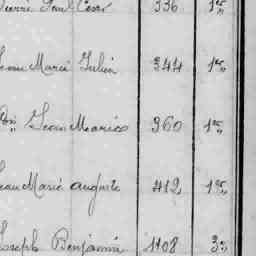 Pierre Paul César 336 1 "
Jean Marie Julien 344 1 "
Jean Marie 360 1 "
Jean Marie Auguste 412 1 "
Joseph Benjamin 1108 3 "